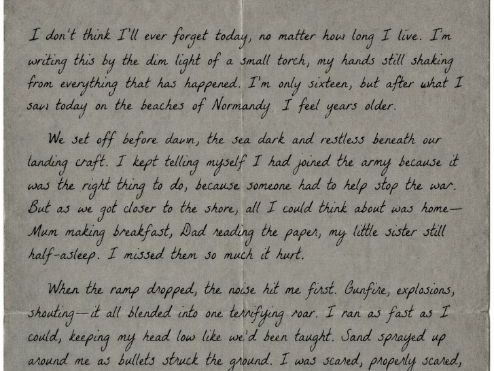 I don't think I'll ever forget today, no matter how long I live. I'm
writing this by the dim light of a small torch, my hands still shaking
from everything that has happened. I'm only sixteen, but after what I
saw today on the beaches of Normandy I feel years older.
We set off before dawn, the sea dark and restless beneath our
landing craft. I kept telling myself I had joined the army because it
was the right thing to do, because someone had to help stop the war.
But as we got closer to the shore, all I could think about was home—
Mum making breakfast, Dad reading the paper, my little sister still
half-asleep. I missed them so much it hurt.
When the ramp dropped, the noise hit me first. Gunfire, explosions,
shouting—it all blended into one terrifying roar. I ran as fast as I
could, keeping my head low like we'd been taught. Sand sprayed up
around me as bullets struck the ground. I was scared, properly scared,